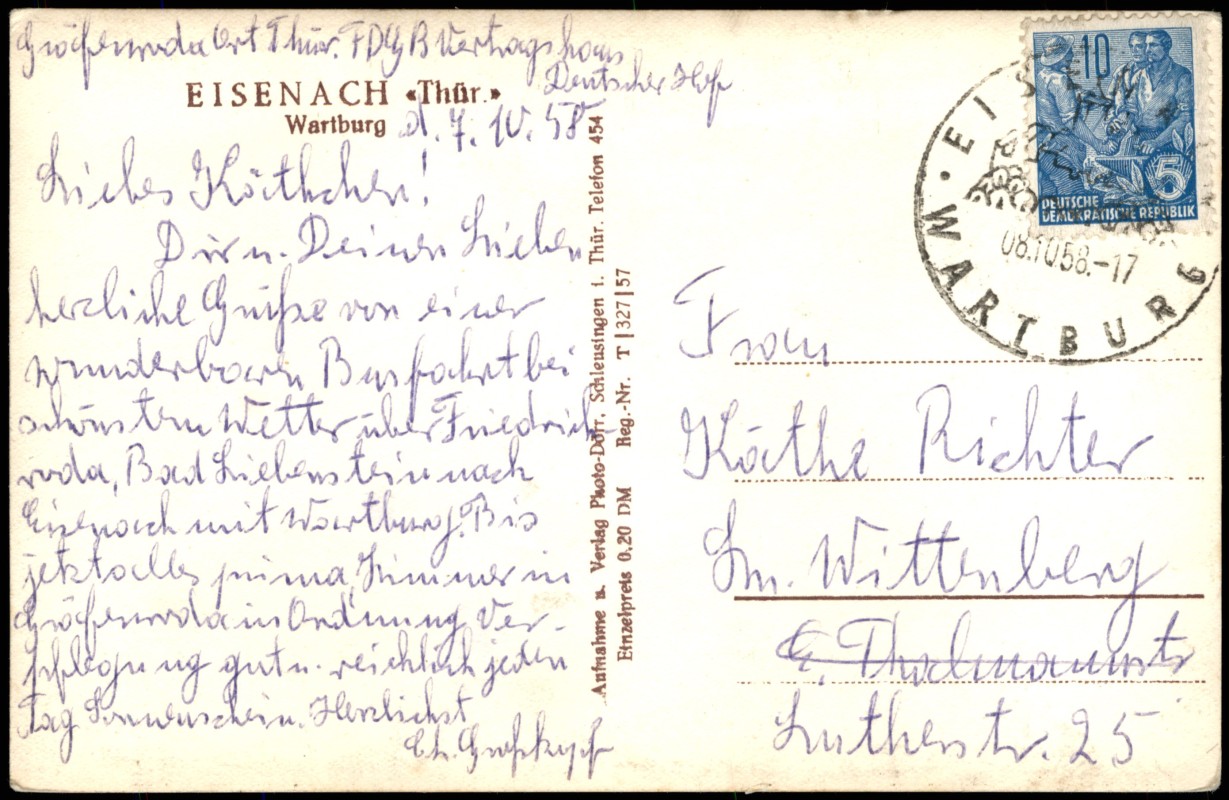 Gräfenroda Ort Thür. FDGB Vertragshaus
Deutscher Hof
EISENACH «Thür.»
Wartburg
d. 7. 10. 58
Liebes Käthchen!
Dir u. Deinen Lieben
herzliche Grüße von einer
wunderbaren Busfahrt bei
schönstem Wetter über Friedrich-
roda, Bad Liebenstein nach
Eisenach mit Wartburg. Bis
jetzt alles prima, Zimmer in
Gräfenroda in Ordnung, Ver-
pflegung gut u. reichlich jeden
Tag Sonnenschein. Herzlichst
Großkopf
Aufnahme u. Verlag Photo-Dörr, Schleusingen i. Thür. Telefon 454
Einzelpreis 0.20 DM Reg.-Nr. T|327|57
10
5
DEUTSCHE
DEMOKRATISCHE REPUBLIK
EISENACH
08.10.58.-17
WARTBURG
Frau
Käthe Richter
Wittenberg
E. Thälmannstr
Lutherstr. 25